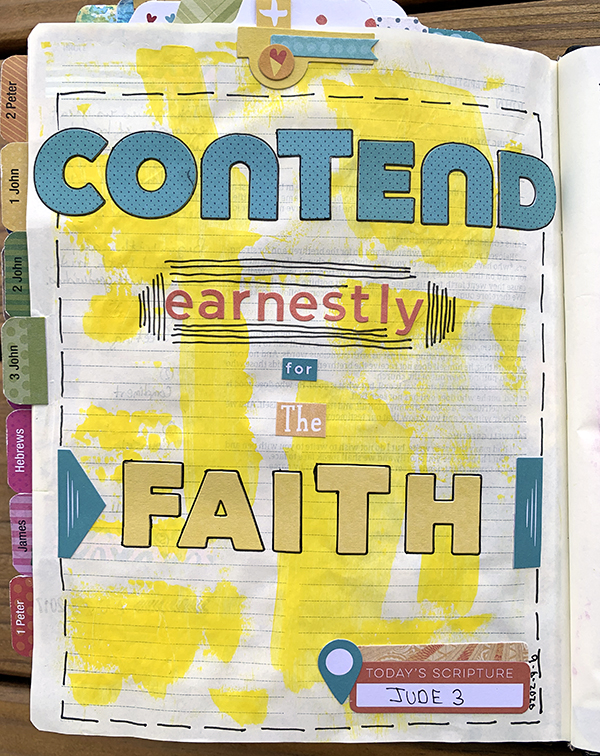 CONTEND
earnestly
for
The
FAITH
TODAY'S SCRIPTURE
JUDE 3
2 Peter
1 John
2 John
3 John
Hebrews
James
1 Peter